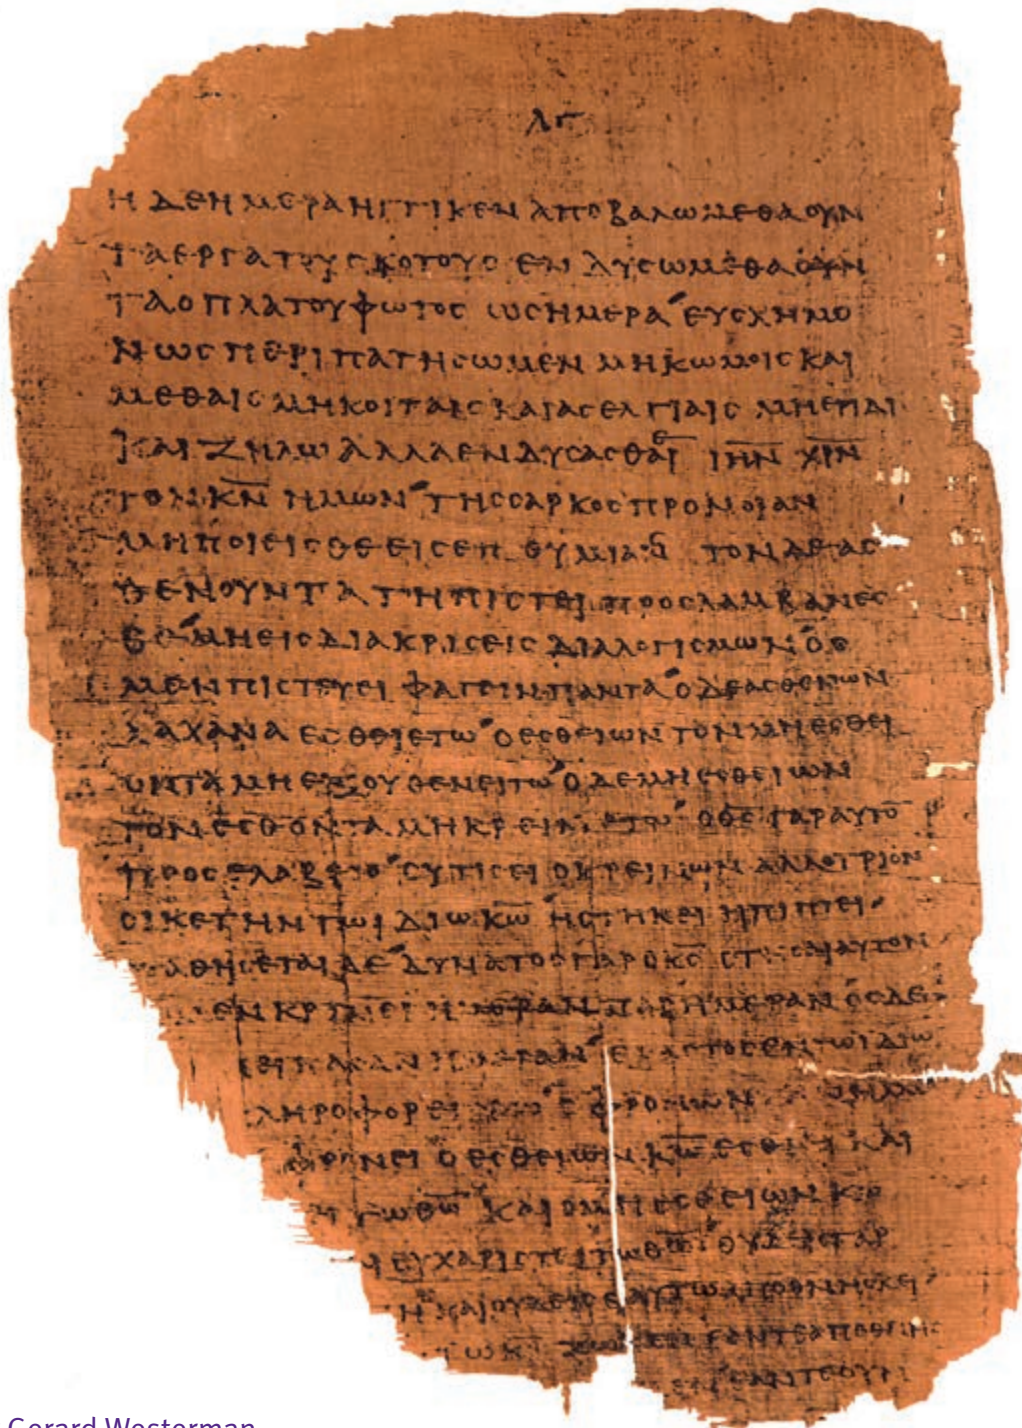 ΛΓ
ΗΔΕΗΜΕΡΑΗΓΓΙΚΕΝΑΠΟΒΑΛΩΜΕΘΑΟΥΝ
ΤΑΕΡΓΑΤΟΥϹΚΟΤΟΥϹΕΝΔΥϹΩΜΕΘΑΟΥΝ
ΤΑΟΠΛΑΤΟΥΦΩΤΟϹΩϹΗΜΕΡΑΕΥϹΧΗΜΟ
ΝΩϹΠΕΡΙΠΑΤΗϹΩΜΕΝΜΗΚΩΜΟΙϹΚΑΙ
ΜΕΘΑΙϹΜΗΚΟΙΤΑΙϹΚΑΙΑϹΕΛΓΙΑΙϹΜΗΕΡΙΔΙ
ΚΑΙΖΗΛΩΑΛΛΑΕΝΔΥϹΑϹΘΑΙ ΙΗΝ ΧΡΙΝ
ΤΟΝΚΝ ΗΜΩΝ ΤΗϹϹΑΡΚΟϹΠΡΟΝΟΙΑΝ
ΜΗΠΟΙΕΙϹΘΕΕΙϹΕΠΙΘΥΜΙΑϹ ΤΟΝΔΕΑϹ
ΘΕΝΟΥΝΤΑΤΗΠΙϹΤΕΙΠΡΟϹΛΑΜΒΑΝΕϹ
ΘΕΜΗΕΙϹΔΙΑΚΡΙϹΕΙϹΔΙΑΛΟΓΙϹΜΩΝΟϹ
ΜΕΝΠΙϹΤΕΥΕΙΦΑΓΕΙΝΠΑΝΤΑΟΔΕΑϹΘΕΝΩΝ
ΛΑΧΑΝΑΕϹΘΕΙΕΤΩΟΕϹΘΕΙΩΝΤΟΝΜΗΕϹΘΕΙ
ΟΝΤΑΜΗΕΞΟΥΘΕΝΕΙΤΩΟΔΕΜΗΕϹΘΕΙΩΝ
ΤΟΝΕϹΘΟΝΤΑΜΗΚΡΕΙΝΕΤΩ ΟΘϹΓΑΡΑΥΤΟ
ΠΡΟϹΕΛΑΒΕΤΟϹΥΤΙϹΕΙΟΚΡΕΙΝΩΝΑΛΛΟΤΡΙΟΝ
ΟΙΚΕΤΗΝΤΩΙΔΙΩΚΩ ΗϹΤΗΚΕΙΗΠΙΠΤΕΙ
ϹΤΑΘΗϹΕΤΑΙΔΕΔΥΝΑΤΟϹΓΑΡΟΚϹ ϹΤΗϹΑΙΑΥΤΟΝ
ΜΕΝΚΡΙΝΕΙΗΜΕΡΑΝΠΑΡΗΜΕΡΑΝΟϹΔΕ
ΝΕΙΠΑϹΑΝΗΜΕΡΑΝΕΚΑϹΤΟϹΕΝΤΩΙΔΙΩ
ΛΗΡΟΦΟΡΕΙ ΦΡΟΝΩΝ
ΦΡΟΝΕΙΟΕϹΘΕΙΩΝΚΩΕϹΘΙΕΙΚΑΙ
ΤΩΘΩ ΚΑΙΟΜΗΕϹΘΕΙΩΝΚΩ
ΕΥΧΑΡΙϹΤΕΙΤΩΘΩ ΟΥΔΕΙϹΓΑΡ
Η ΚΑΙΟΥΔΕΙϹΕΑΥΤΩΑΠΟΘΝΗϹΚΕΙ
ΤΩΚΩ ΖΩΜΕΝΕΑΝΤΕΑΠΟΘΝΗϹ
ΕΑΝΤΕΟΥΝ
Gerard Westerman